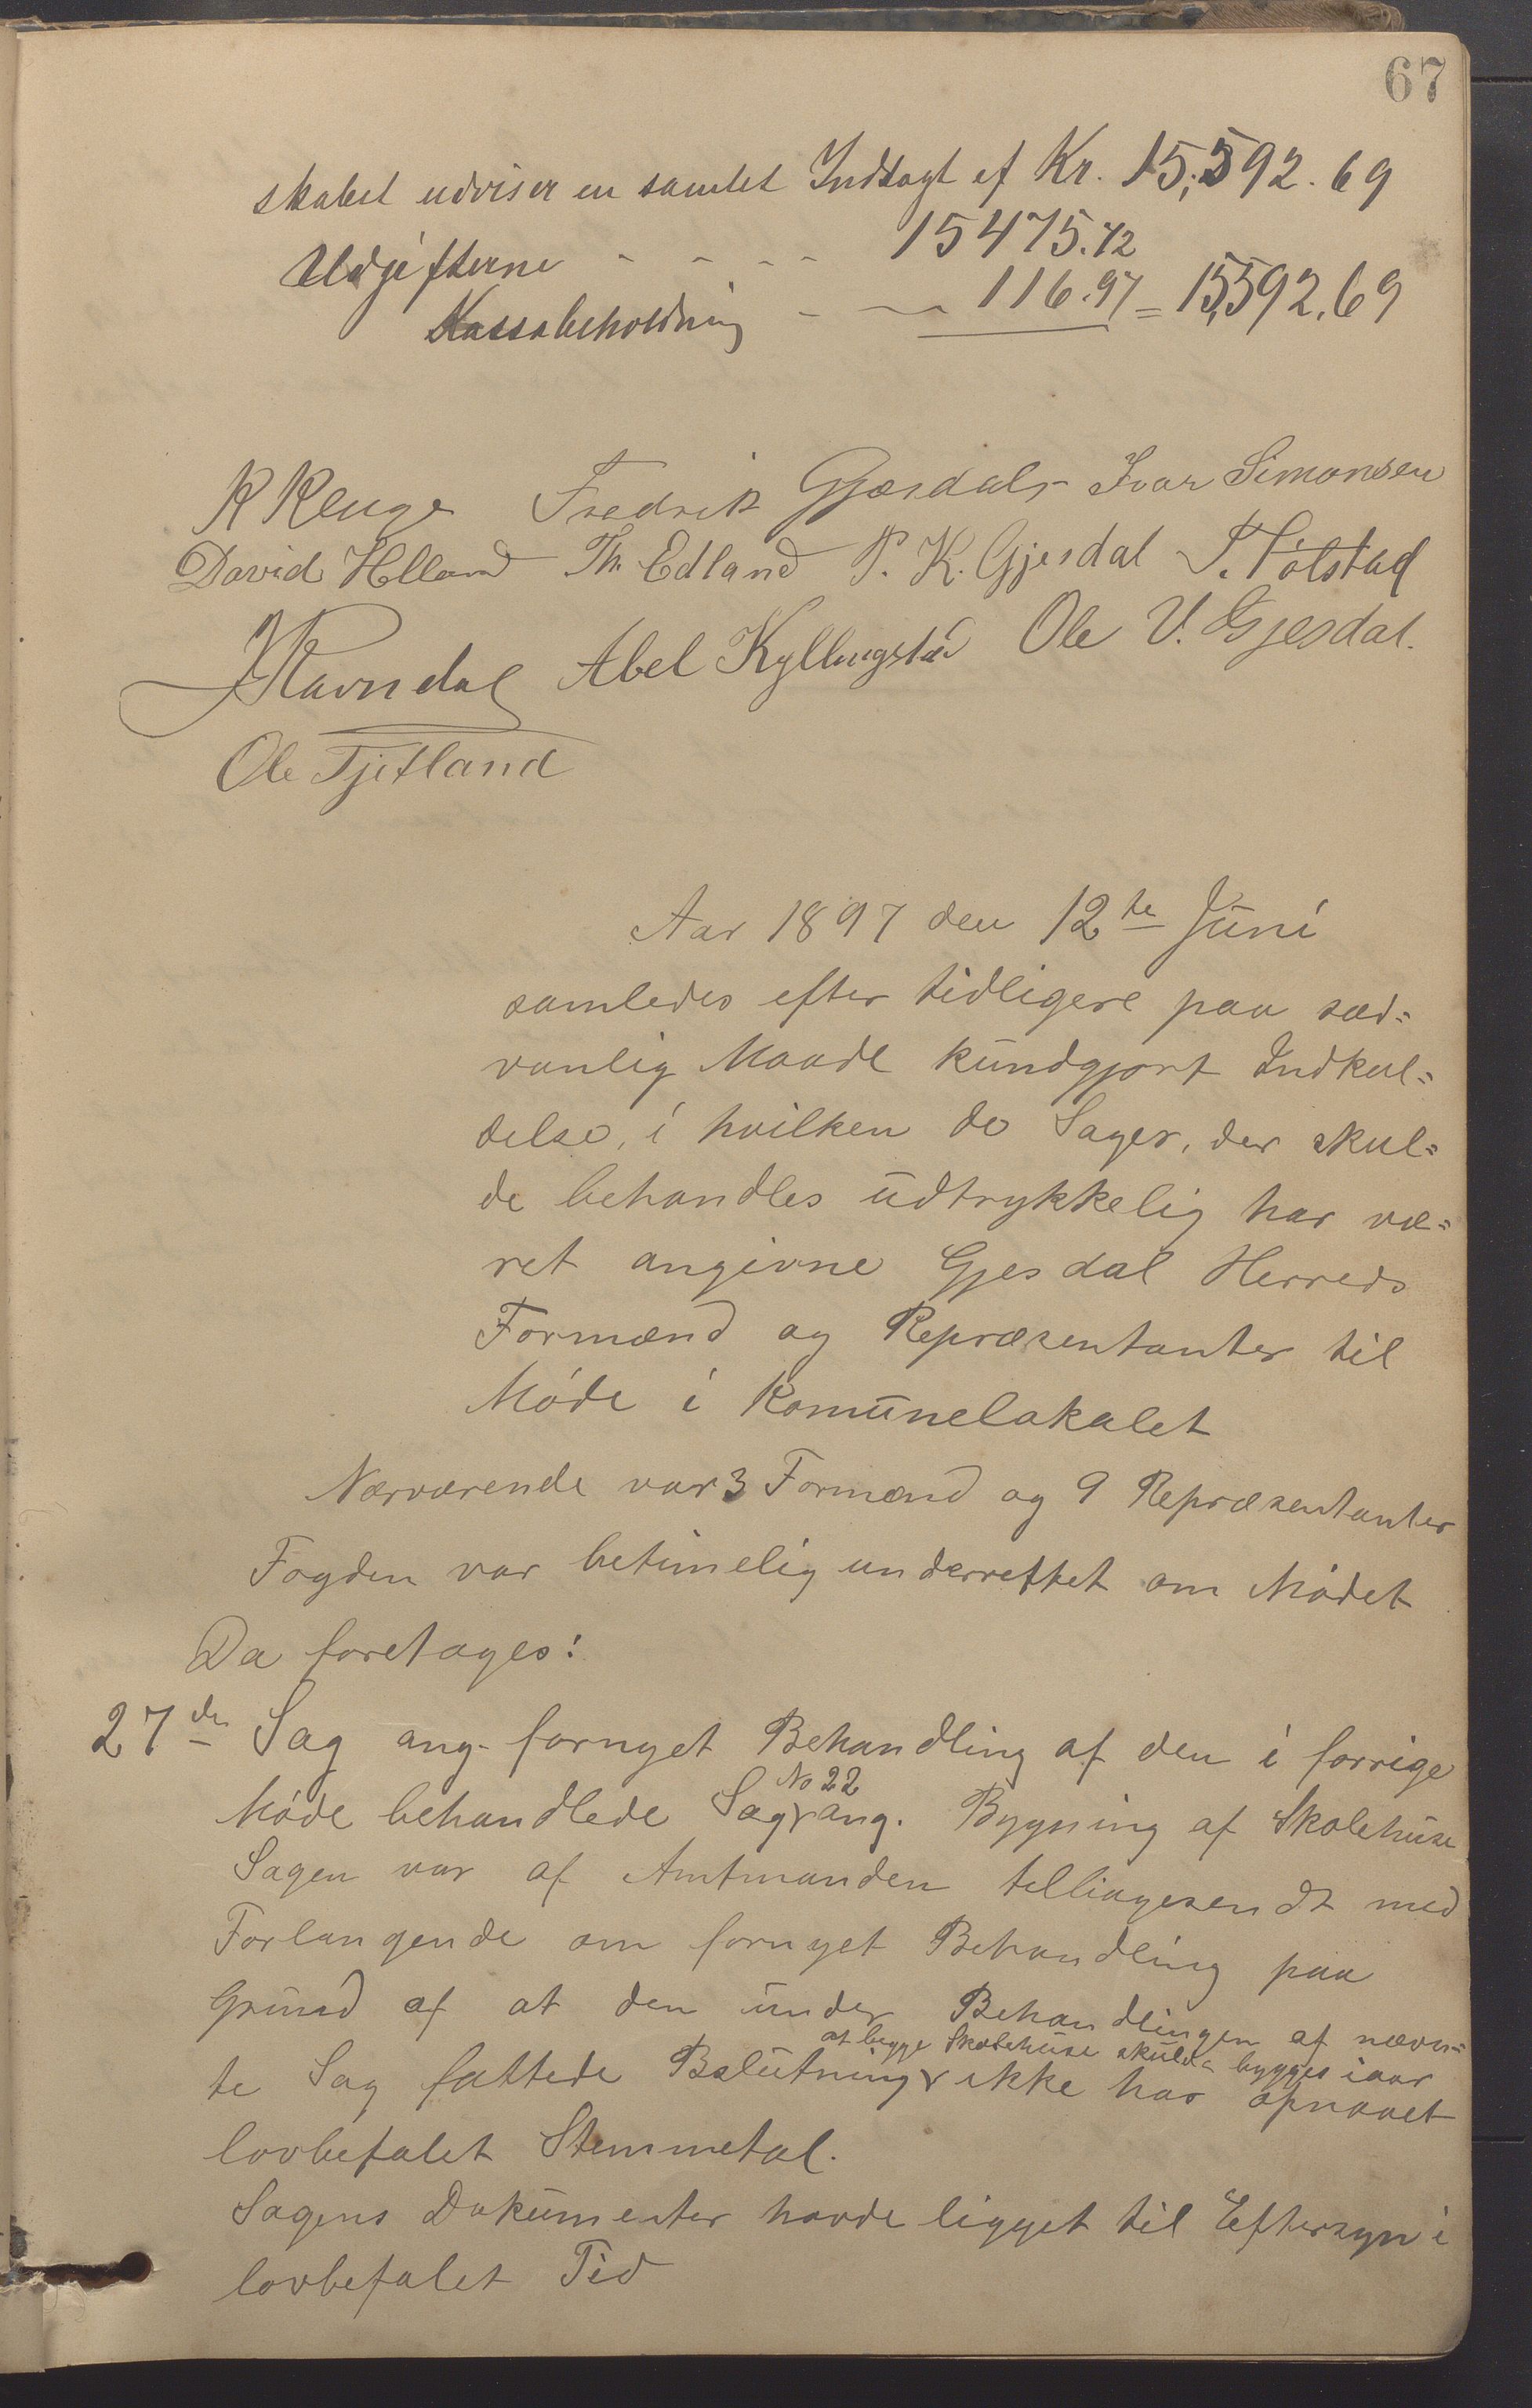 67
skabet udviser en samlet Indtægt af Kr. 15,592.69
Udgifterne - - - - 15475.72
Kassabeholdning - — 116.97 = 15,592,69
K Kluge Fredrik Gjesdal Ivar Simonsen
David Hølland Th. Edland P. K. Gjesdal T. Tølstad
Ravndal Abel Kyllingstad Ole V. Gjesdal.
Ole Tjetland
Aar 1897 den 12te Juni
samledes efter tidligere paa sæd=
vanlig Maade kundgjort Indkal=
delse, i hvilken de Sager, der skul=
de behandles udtrykkelig har væ=
ret angivne Gjesdal Herreds
Formænd og Repræsentanter til
Møde i Komunelokalet
Nærværende var 3 Formænd og 9 Repræsentanter
Fogden var betimelig underrettet om Mødet
Da foretoges:
27de Sag ang. fornyet Behandling af den i forrige
No 22
Møde behandlede Sag ang. Bygning af Skolehuse
Sagen var af Amtmanden tilbagesendt med
Forlangende om fornyet Behandling paa
Grund af at den under Behandlingen af nævn=
at begge Skolehuse skulde bygges iaar
te Sag fattede Beslutning ikke har opnaaet
lovbefalet Stemmetal.
Sagens Dokumenter havde ligget til Eftersyn i
lovbefalet Tid